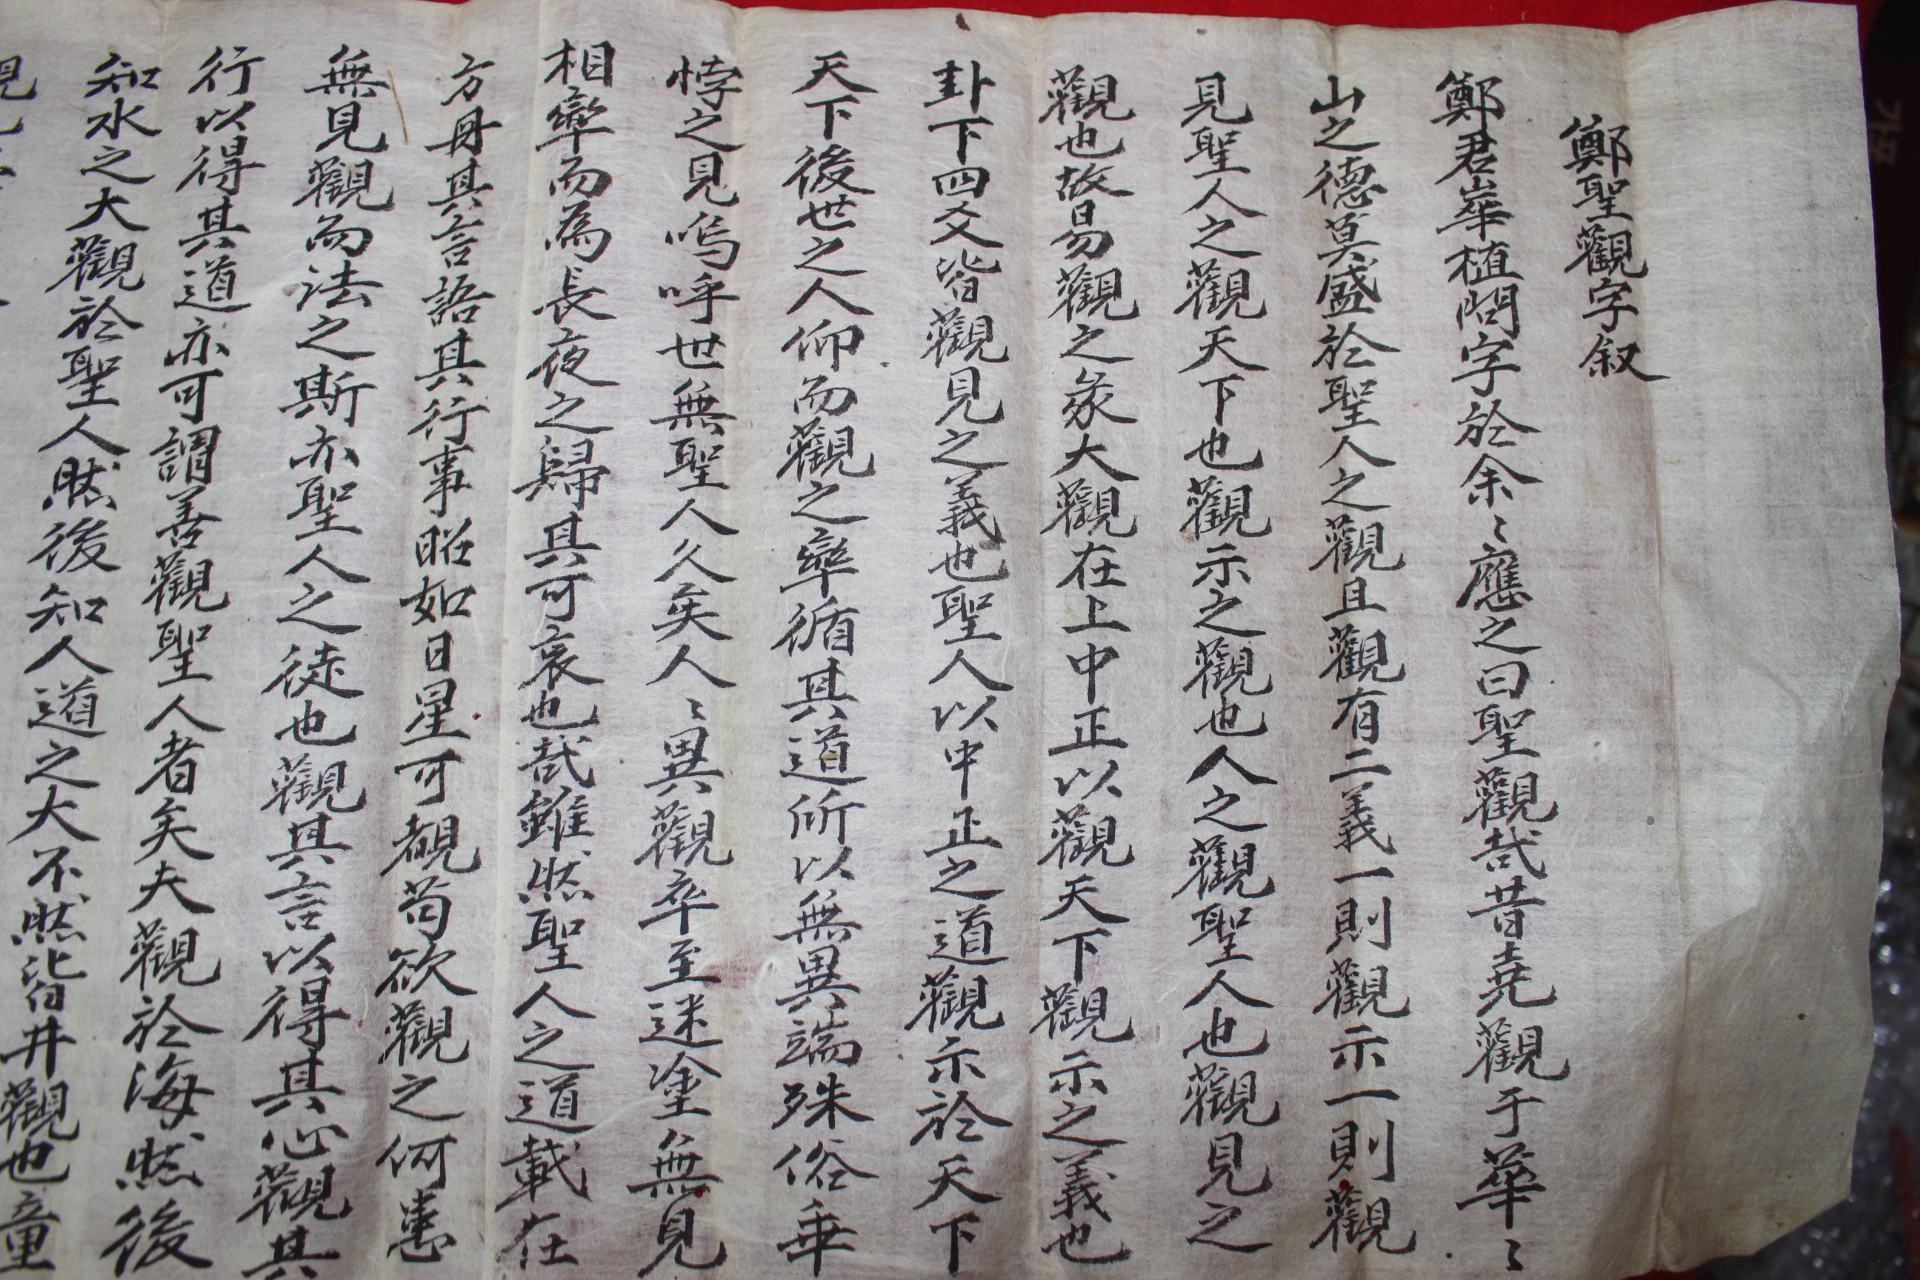 鄭聖觀字叙
鄭君崋植問字於余〻應之曰聖觀哉昔堯觀于華〻
山之德莫盛於聖人之觀且觀有二義一則觀示一則觀
見聖人之觀天下也觀示之觀也人之觀聖人也觀見之
觀也故易觀之彖大觀在上中正以觀天下觀示之義也
卦下四爻皆觀見之義也聖人以中正之道觀示於天下
天下後世之人仰而觀之率循其道所以無異端殊俗乖
悖之見嗚呼世無聖人久矣人〻異觀卒至迷塗無見
相率而為長夜之歸其可哀也哉雖然聖人之道載在
方冊其言語其行事昭如日星可覩苟欲觀之何患
無見觀而法之斯亦聖人之徒也觀其言以得其心觀其
行以得其道亦可謂善觀聖人者矣夫觀於海然後
知水之大觀於聖人然後知人道之大不然皆井觀也童